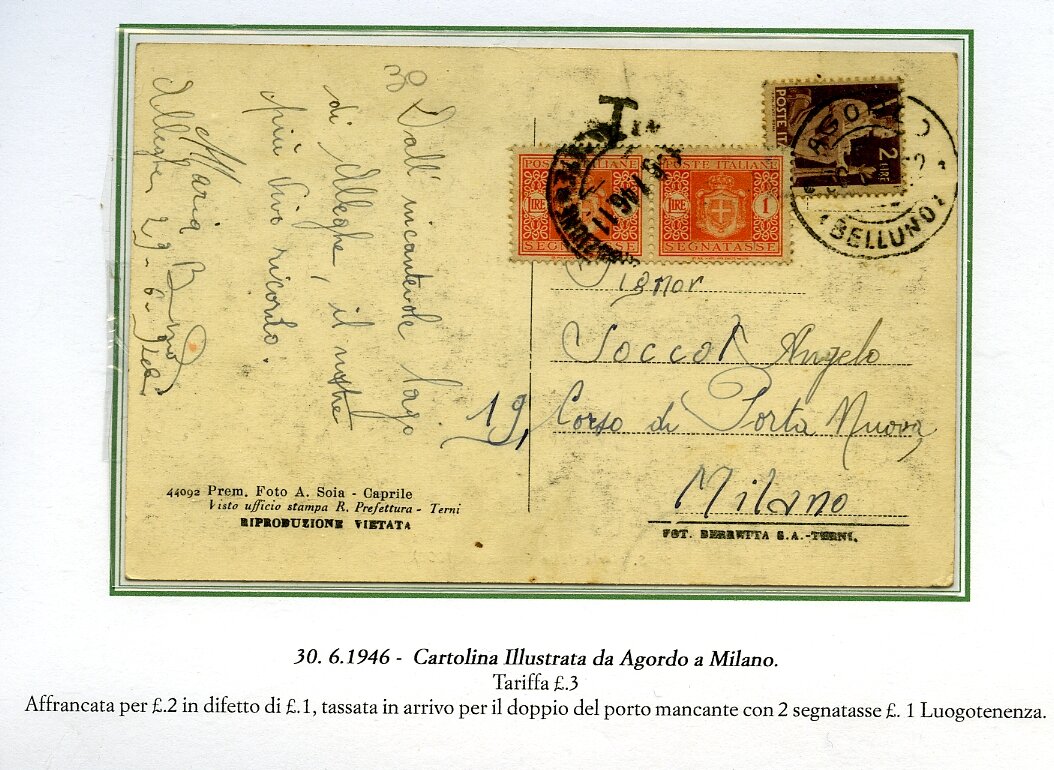 Dall' incantevole lago
di Alleghe, il nostro
più vivo ricordo.
Maria
Alleghe 29-6-
T
POSTE ITALIANE
1 LIRE
SEGNATASSE
POSTE ITALIANE
LIRE 1
SEGNATASSE
1.7.46.11
POSTE ITA
2 LIRE
(BELLUNO)
Signor
Soccol Angelo
19, Corso di Porta Nuova
Milano
44092 Prem. Foto A. Soia - Caprile
Visto ufficio stampa R. Prefettura - Terni
RIPRODUZIONE VIETATA
FOT. BERRETTA S.A.-TERNI.
30. 6.1946 - Cartolina Illustrata da Agordo a Milano.
Tariffa £.3
Affrancata per £.2 in difetto di £.1, tassata in arrivo per il doppio del porto mancante con 2 segnatasse £. 1 Luogotenenza.